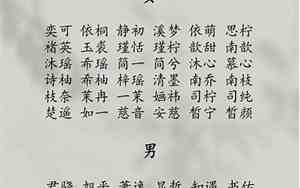 奕 依桐 静初 溪梦 依萌 思柠
英 玉裳 瑾恬 瑾柠 韵甜 南歆
沐瑶 希瑶 简瑶 简兮 沐心 慕心
诗柚 希柚 清墨 南乔 南枝
枝奈 茉冉 一瑾 婳祎 司柠 司纯
楚遥 如一 慈音 安慈 皙宁 皙颜
男